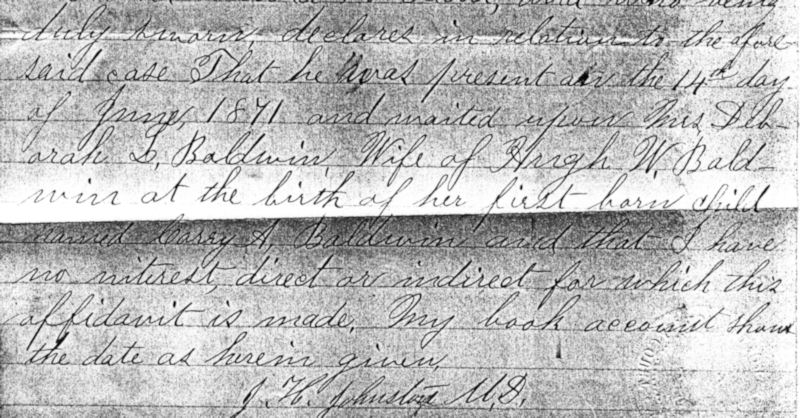 duly sworn, declares in relation to the afore
said case That he was present on the 14th day
of June, 1871 and waited upon Mrs, Deb-
orah L, Baldwin, Wife of Hugh W, Bald-
win at the birth of her first born child
named Carry A, Baldwin and that I have
no interest, direct or indirect for which this
affidavit is made, My book account shows
the date as herein given,
J. H. Johnston M.D.